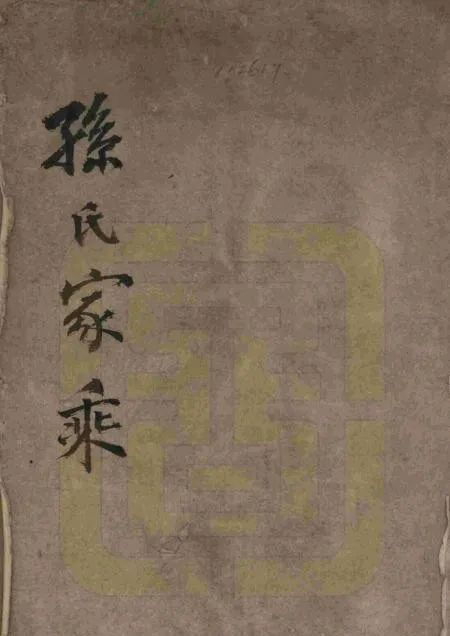 孫氏家乘